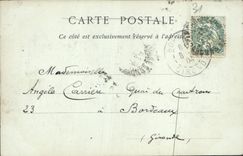 31
CARTE POSTALE
Ce côté est exclusivement réservé à l'adresse
Mademoiselle
Angèle Carrière Quai des Chartrons
23 à Bordeaux
(Gironde)